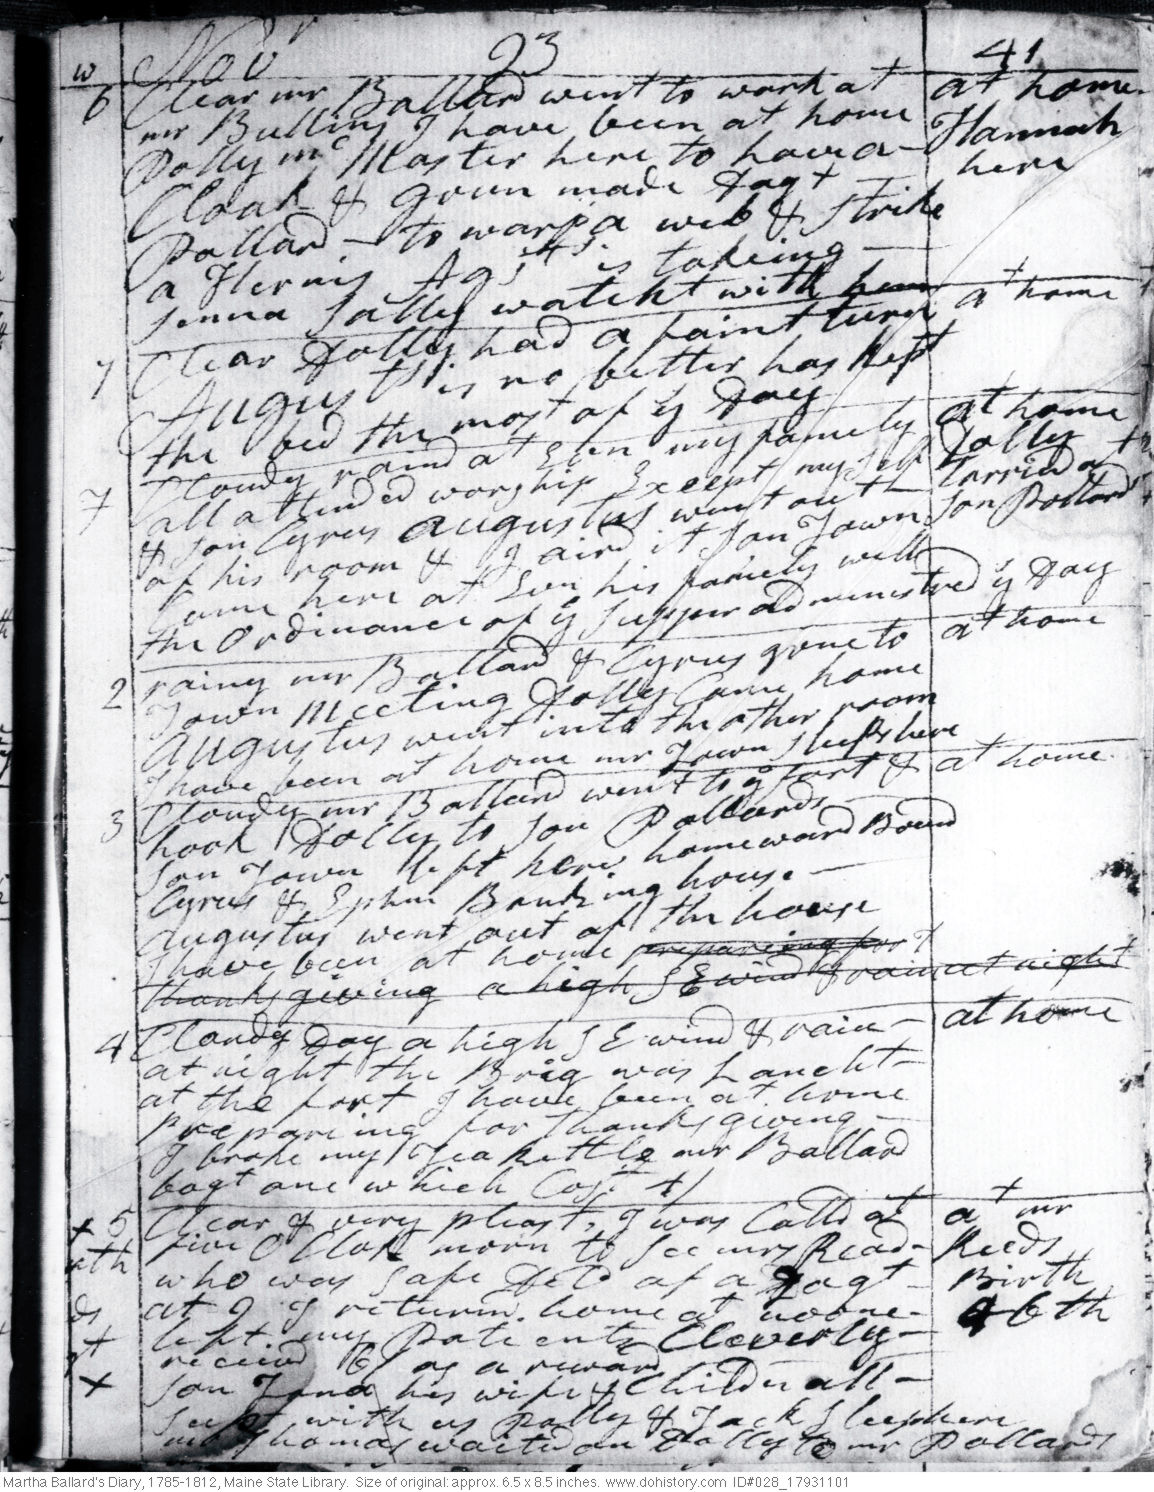 Novr 23 41
w
6 Clear mr Ballard went to work at at home.
mr Bullins I have been at home Hannah
Polly mc Master here to have a here
Cloak & gown made Dagt
Pollard to warp a web & strike
a Hernis Ags is takeing
senna Sally watcht with him
7 Clear Dolly had a faint turn at home
August is no better has kept
the bed the most of ye Day
7 Cloudy raind at Even my famely at home
all attended worship Except my self Dolly
& son Cyrus augustus went out tarried at
of his room & I aird it son Town son Pollards
Came here at Evn his famely well
the Ordinance of ye supper administred ye Day
2 rainy mr Ballard & Cyrus gone to at home
Town Meeting Dolly Came home
augustus went into the other room
I have been at home mr Town sleeps here
3 Cloudy mr Ballard went to ye fort & at home.
hook Dolly to son Pollards
son Town left here homeward Bound
Cyrus & Ephm Banking house.
augustus went out of the house
I have been at home prepareing for
thanksgiving a high S E wind & rain at night
4 Cloudy Day a high S E wind & rain at home
at night the Brig was Lancht
at the fort I have been at home
prepareing for thanksgiveing
I broke my Tea Kettle mr Ballard
bogt one which Cost
x 5 Clear & very pleast, I was Calld at at mr
five O Clok morn to see mrs Read Reeds
who was safe Deld of a Dagt Birth
at I returnd home at noone 46th
left my Patient Cleverly
receivd 6/ as a reward
x son Town his wife & Childn all
sleept with us Polly & Jack sleep here
mr Thomas waited on Dolly to mr Pollards
Martha Ballard's Diary, 1785-1812, Maine State Library. Size of original: approx. 6.5 x 8.5 inches. www.dohistory.com ID#028_17931101